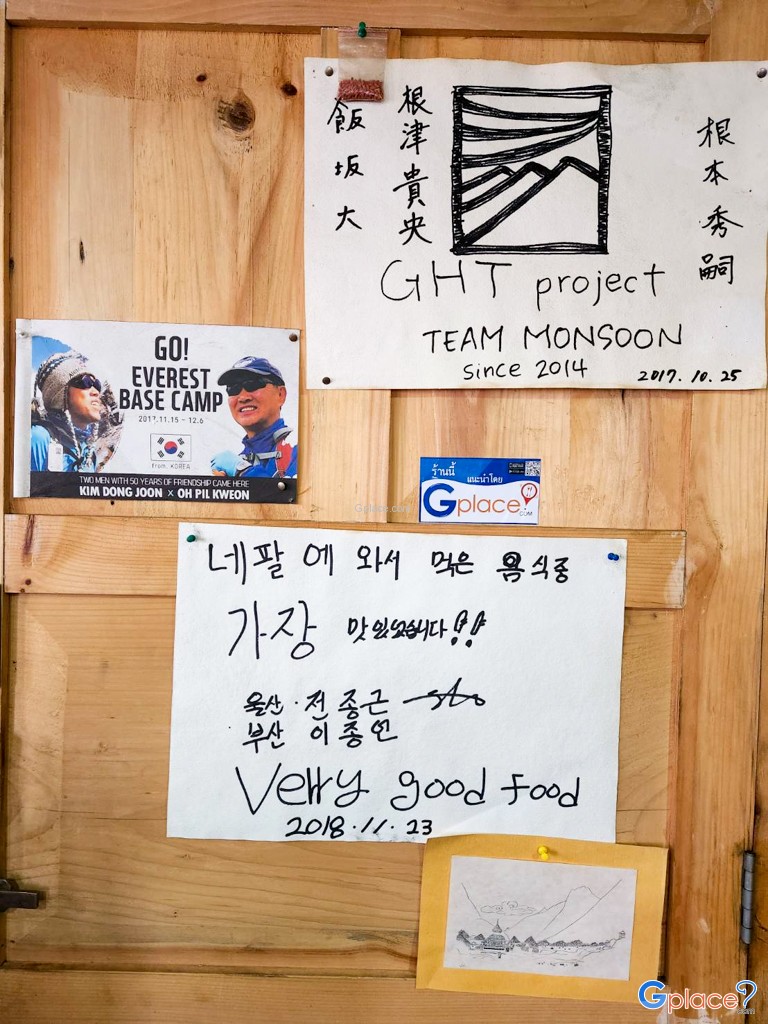 飯坂大
根津貴央
根本秀嗣
GHT project
TEAM MONSOON
since 2014
2017.10.25
GO!
EVEREST
BASE CAMP
2017.11.15 - 12.6
from. KOREA
TWO MEN WITH 50 YEARS OF FRIENDSHIP CAME HERE
KIM DONG JOON x OH PIL KWEON
ร้านนี้
แนะนำโดย
Gplace
.COM
Gplace.com
네팔에 와서 먹은 음식중
가장 맛있었습니다!!
울산. 전종근
부산 이종언
Verry good food
2018.11.23
Gplace
.com